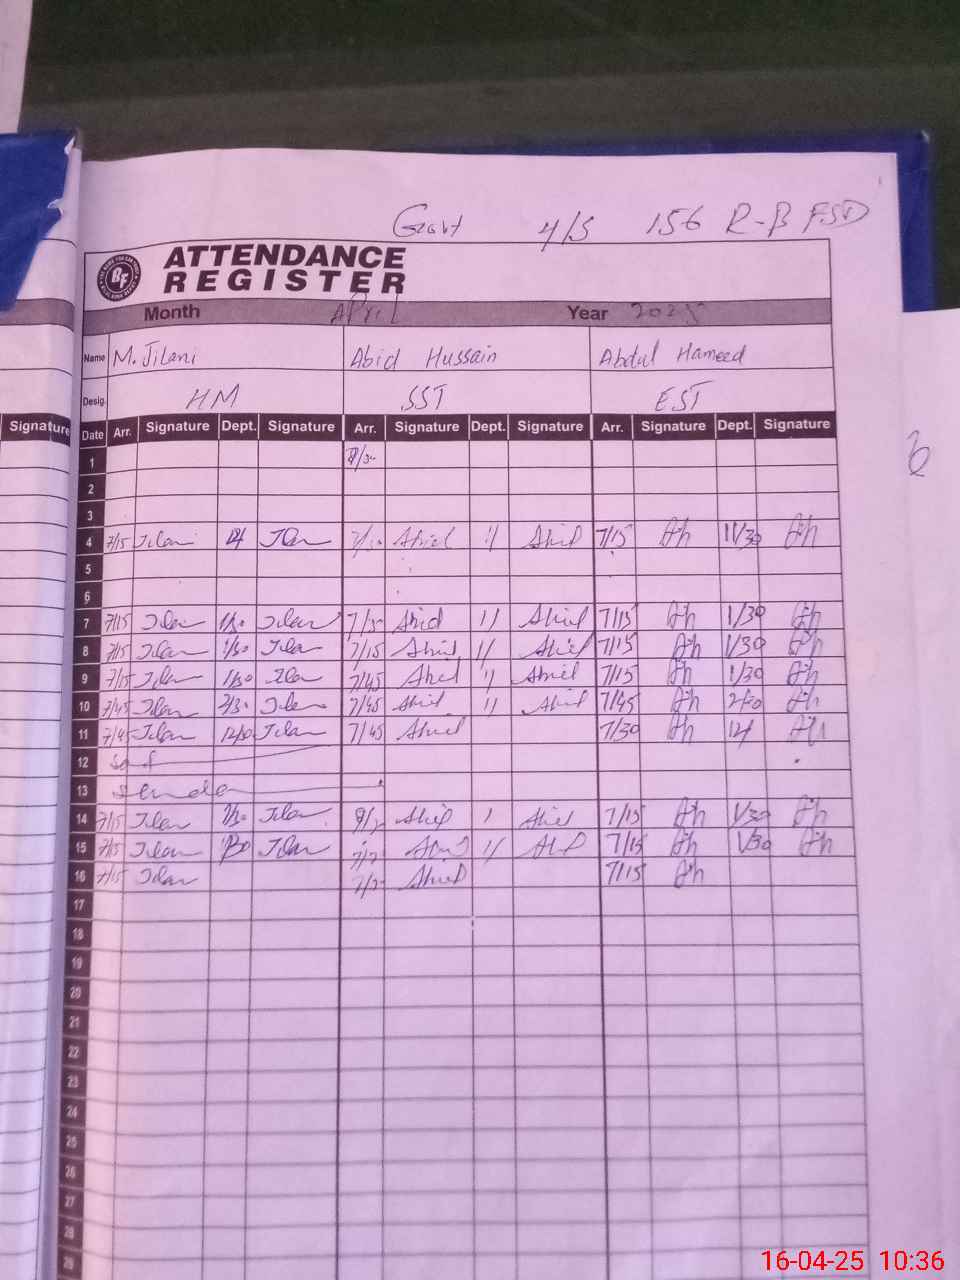 Govt 4/S 156 R-B FSD
ATTENDANCE
REGISTER
BF
Month April Year 2025
Name M. Jilani Abid Hussain Abdul Hameed
Desig. HM SST EST
Signature Date Arr. Signature Dept. Signature Arr. Signature Dept. Signature Arr. Signature Dept. Signature
1
2
3
4 7/15 Jilani Abid 11 Abid 7/15 11/30
5
6
7 7/15 Jilan Jilan Abid 11 Abid 7/15 1/30
8 7/15 Jilan 1/30 Jilan 7/15 Abid 11 Abid 7/15 1/30
9 7/15 Jilan 1/30 Jilan 7/45 Abid 11 Abid 7/15 1/30
10 7/45 Jilan 2/30 Jilan 7/45 Abid 11 Abid 7/45 2/30
11 7/45 Jilan Jilan 7/45 Abid 7/30 12/
12
13 Sunday
14 7/15 Jilan Jilan Abid 1 Abid 7/15 1/30
15 7/15 Jilan 1/30 Jilan Abid 11 Abid 7/15 1/30
16 7/15 Jilan Abid 7/15
17
18
19
20
21
22
23
24
25
26
27
28
29
16-04-25 10:36